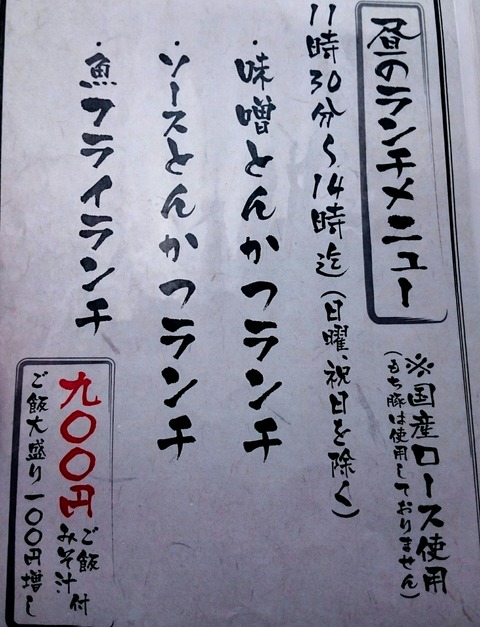 昼のランチメニュー
※国産ロース使用
(もち豚は使用しておりません)
11時30分〜14時迄(日曜、祝日を除く)
・味噌とんかつランチ
・ソースとんかつランチ
・魚フライランチ
九〇〇円
ご飯
みそ汁
付
ご飯大盛り一〇〇円増し